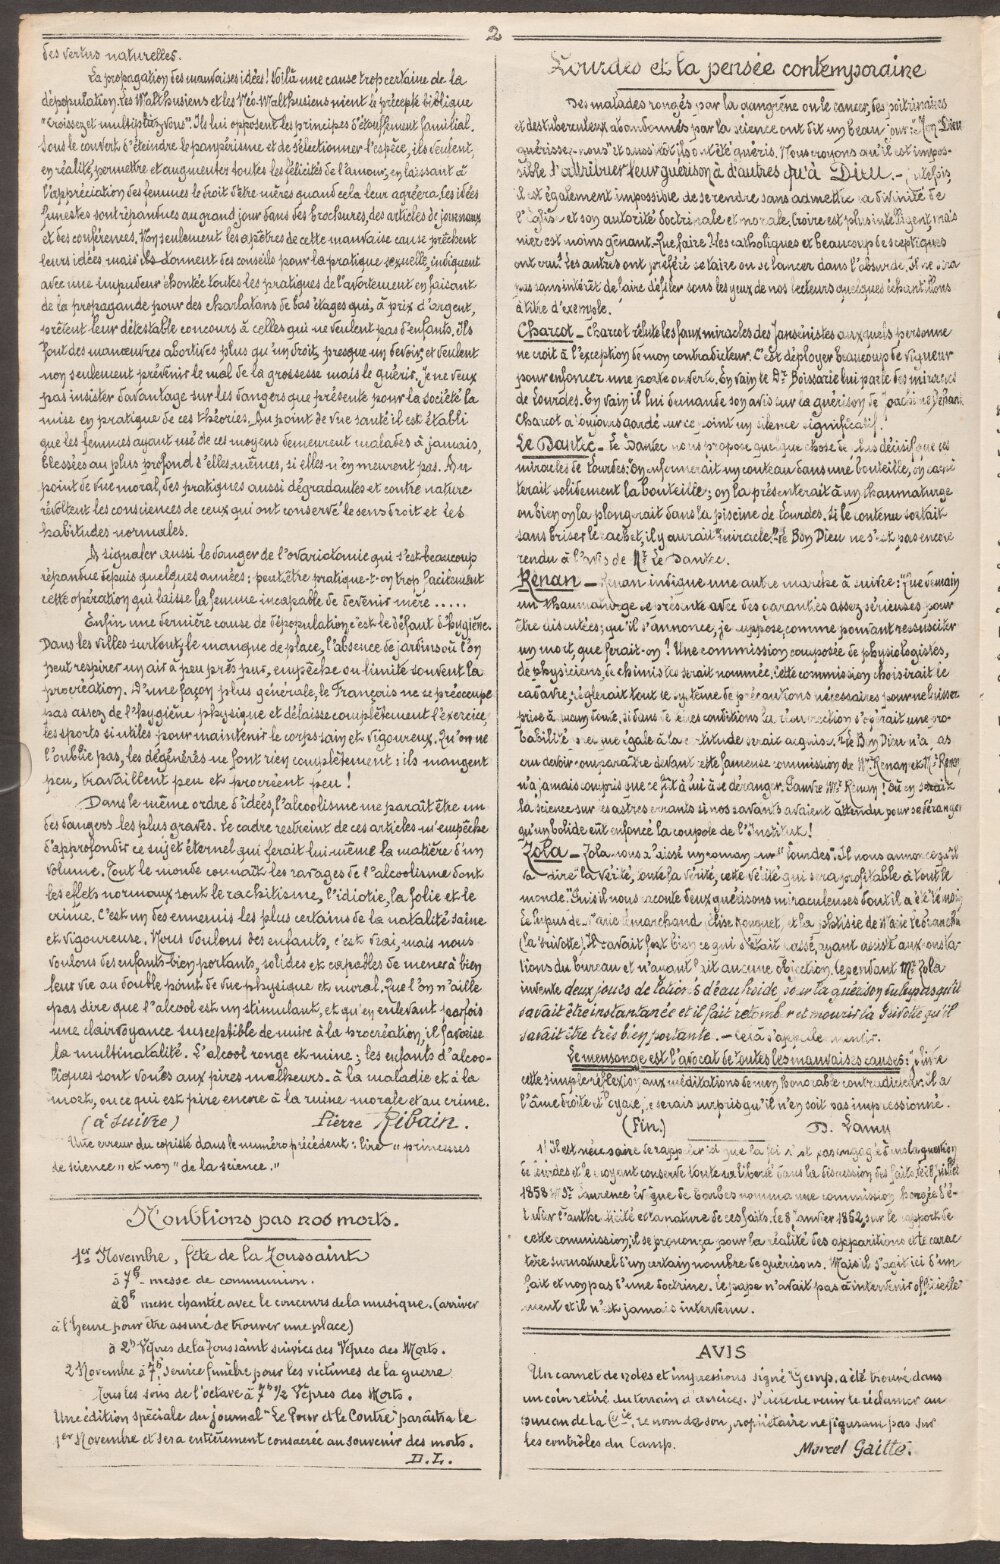 2
des vertus naturelles.
La propagation des mauvaises idées! Voilà une cause trop certaine de la
dépopulation. Les Malthusiens et les Néo-Malthusiens nient le précepte biblique
"Croissez et multipliez-vous". Ils lui opposent les principes d'étouffement familial.
Sous le couvert d'éteindre le paupérisme et de sélectionner l'espèce, ils veulent,
en réalité, permettre et augmenter toutes les félicités de l'amour, en laissant à
l'appréciation des femmes le droit d'être mères quand cela leur agréera. Ces idées
funestes sont répandues au grand jour dans des brochures, des articles de journaux
et des conférences. Non seulement les apôtres de cette mauvaise cause prêchent
leurs idées mais ils donnent des conseils pour la pratique sexuelle, indiquent
avec une impudeur éhontée toutes les pratiques de l'avortement en faisant
de la propagande pour des charlatans de bas étages qui, à prix d'argent,
prêtent leur détestable concours à celles qui ne veulent pas d'enfants. Ils
font des manœuvres abortives plus qu'un droit, presque un devoir, et veulent
non seulement prévenir le mal de la grossesse mais le guérir. Je ne veux
pas insister davantage sur les dangers que présente pour la société la
mise en pratique de ces théories. Au point de vue santé il est établi
que les femmes ayant usé de ces moyens demeurent malades à jamais,
blessées au plus profond d'elles-mêmes, si elles n'en meurent pas. Au
point de vue moral, des pratiques aussi dégradantes et contre nature
révoltent les consciences de ceux qui ont conservé le sens droit et les
habitudes normales.
A signaler aussi le danger de l'ovariotomie qui s'est beaucoup
répandue depuis quelques années: peut être pratique-t-on trop facilement
cette opération qui laisse la femme incapable de devenir mère .....
Enfin une dernière cause de dépopulation c'est le défaut d'hygiène.
Dans les villes surtout, le manque de place, l'absence de jardins où l'on
peut respirer un air à peu près pur, empêche ou limite souvent la
procréation. D'une façon plus générale, le Français ne se préoccupe
pas assez de l'hygiène physique et délaisse complètement l'exercice,
les sports si utiles pour maintenir le corps sain et vigoureux. Qu'on ne
l'oublie pas, les dégénérés ne font rien complètement: ils mangent
peu, travaillent peu et procréent peu!
Dans le même ordre d'idées, l'alcoolisme me parait être un
des dangers les plus graves. Le cadre restreint de ces articles m'empêche
d'approfondir ce sujet éternel qui ferait lui-même la matière d'un
volume. Tout le monde connait les ravages de l'alcoolisme dont
les effets normaux sont le rachitisme, l'idiotie, la folie et le
crime. C'est un des ennemis les plus certains de la natalité saine
et vigoureuse. Nous voulons des enfants, c'est vrai, mais nous
voulons des enfants bien portants, solides et capables de mener à bien
leur vie au double point de vue physique et moral. Que l'on n'aille
pas dire que l'alcool est un stimulant, et qu'en enlevant parfois
une clairvoyance susceptible de nuire à la procréation, il favorise
la multinatalité. L'alcool ronge et mine; les enfants d'alcoo-
liques sont voués aux pires malheurs - à la maladie et à la
mort, ou ce qui est pire encore à la ruine morale et au crime.
(à suivre) Pierre Ribain.
Une erreur du copiste dans le numéro précédent: lire "princesses
de science" et non "de la science."
N'oublions pas nos morts.
1er Novembre, fête de la Toussaint
à 7h messe de communion.
à 8h messe chantée avec le concours de la musique. (arriver
à l'heure pour être assuré de trouver une place)
à 2h Vêpres de la Toussaint suivies des Vêpres des Morts.
2 Novembre à 7h Service funèbre pour les victimes de la guerre
Tous les soirs de l'octave à 7h 1/2 Vêpres des Morts.
Une édition spéciale du journal "Le Pour et le Contre" paraîtra le
1er Novembre et sera entièrement consacrée au souvenir des morts.
D.L.
Lourdes et la pensée contemporaine
Des malades rongés par la gangrène ou le cancer, des poitrinaires
et des tuberculeux abandonnés par la science ont dit un beau jour "Mon Dieu
guérissez-nous" et aussitôt ils ont été guéris. Nous croyons qu'il est impos-
sible d'attribuer leur guérison à d'autres qu'à Dieu. - Toutefois,
il est également impossible de se rendre sans admettre la divinité de
l'Eglise et son autorité doctrinale et morale. Croire est plus intelligent, mais
nier est moins gênant. Que faire? Les catholiques et beaucoup de sceptiques
ont cru? Les autres ont préféré se taire ou se lancer dans l'absurde. Il ne sera
pas sans intérêt de faire défiler sous les yeux de nos lecteurs quelques échantillons
à titre d'exemple.
Charcot - Charcot réfute les faux miracles des Jansénistes auxquels personne
ne croit à l'exception de mon contradicteur. C'est déployer beaucoup de vigueur
pour enfoncer une porte ouverte. En vain le Dr Boissarie lui parle des miracles
de Lourdes. En vain il lui demande son avis sur la guérison de Joachine Dehant
Charcot a toujours gardé sur ce point un silence significatif.
Le Dantec - Le Dantec nous propose quelque chose de plus décisif que ces
miracles de Lourdes: On enfermerait un couteau dans une bouteille, on cache
terait solidement la bouteille; on la présenterait à un thaumaturge
ou bien on la plongerait dans la piscine de Lourdes. Si le contenu sortait
sans briser le cachet, il y aurait miracle." Le Bon Dieu ne s'est pas encore
rendu à l'avis de Mr Le Dantec.
Renan - Renan indique une autre marche à suivre: "Que demain
un thaumaturge se présente avec des garanties assez sérieuses pour
être discutées; qu'il s'annonce, je suppose, comme pouvant ressusciter
un mort, que ferait-on? Une commission composée de physiologistes,
de physiciens, de chimistes serait nommée; cette commission choisirait le
cadavre, règlerait tout le système de précautions nécessaires pour ne laisser
prise à aucun doute. Si dans de telles conditions la résurrection s'opérait une pro-
babilité presque égale à la certitude serait acquise." Le Bon Dieu n'a pas
cru devoir comparaître devant cette fameuse commission de Mr Renan et Mr Renan
n'a jamais compris que ce fût à lui à se déranger. Pauvre Mr Renan! Où en serait
la science sur les astres errants si nos savants avaient attendu pour se déranger
qu'un bolide eût enfoncé la coupole de l'Institut!
Zola - Zola nous a laissé un roman sur "Lourdes". Il nous annonce qu'il
va dire la vérité, toute la vérité, cette vérité qui sera profitable à tout le
monde." Puis il nous raconte deux guérisons miraculeuses dont il a été témoin
Le lupus de Marie Lemarchand, Elise Rouquet, et la phtisie de Marie Lebranchu
(la Grivotte). Il savait fort bien ce qui s'était passé, ayant assisté aux consta-
tions du bureau et n'ayant fait aucune objection. Cependant Mr Zola
invente deux jours de lotions d'eau froide, pour la guérison du lupus qu'il
savait être instantanée et il fait retomber et mourir la Grivotte qu'il
savait être très bien portante. - Cela s'appelle mentir.
Le mensonge est l'avocat de toutes les mauvaises causes: je livre
cette simple réflexion aux méditations de mon honorable contradicteur. Il a
l'âme droite et loyale, je serais surpris qu'il n'en soit pas impressionné.
(Fin.) D. Lamy
1) Il est nécessaire de rappeler ici que la foi n'est pas engagée dans la question
de Lourdes et le croyant conserve toute sa liberté dans la discussion des faits. Le 28 juillet
1858 Mgr Laurence évêque de Tarbes nomma une commission chargée d'é-
tudier l'authenticité et la nature de ces faits. Le 8 janvier 1862, sur le rapport de
cette commission, il se prononça pour la réalité des apparitions et le carac
tère surnaturel d'un certain nombre de guérisons. Mais il s'agit ici d'un
fait et non pas d'une doctrine. Le pape n'avait pas à intervenir officielle
ment et il n'est jamais intervenu.
AVIS
Un carnet de notes et impressions signé Gemp, a été trouvé dans
un coin retiré du terrain d'exercices. Prière de venir le réclamer au
bureau de la Cie, le nom de son propriétaire ne figurant pas sur
les contrôles du Camp.
Marcel Gaitté.